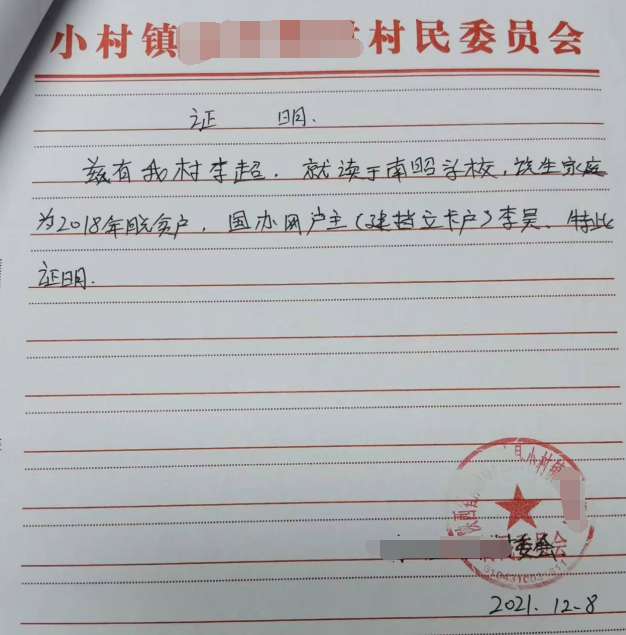 小村镇村民委员会
证 明.
兹有我村李超.就读于南昭学校,该生家庭
为2018年脱贫户,国办网户主(建档立卡户)李昊、特此
证明.
县小村镇
委会
2021.12-8